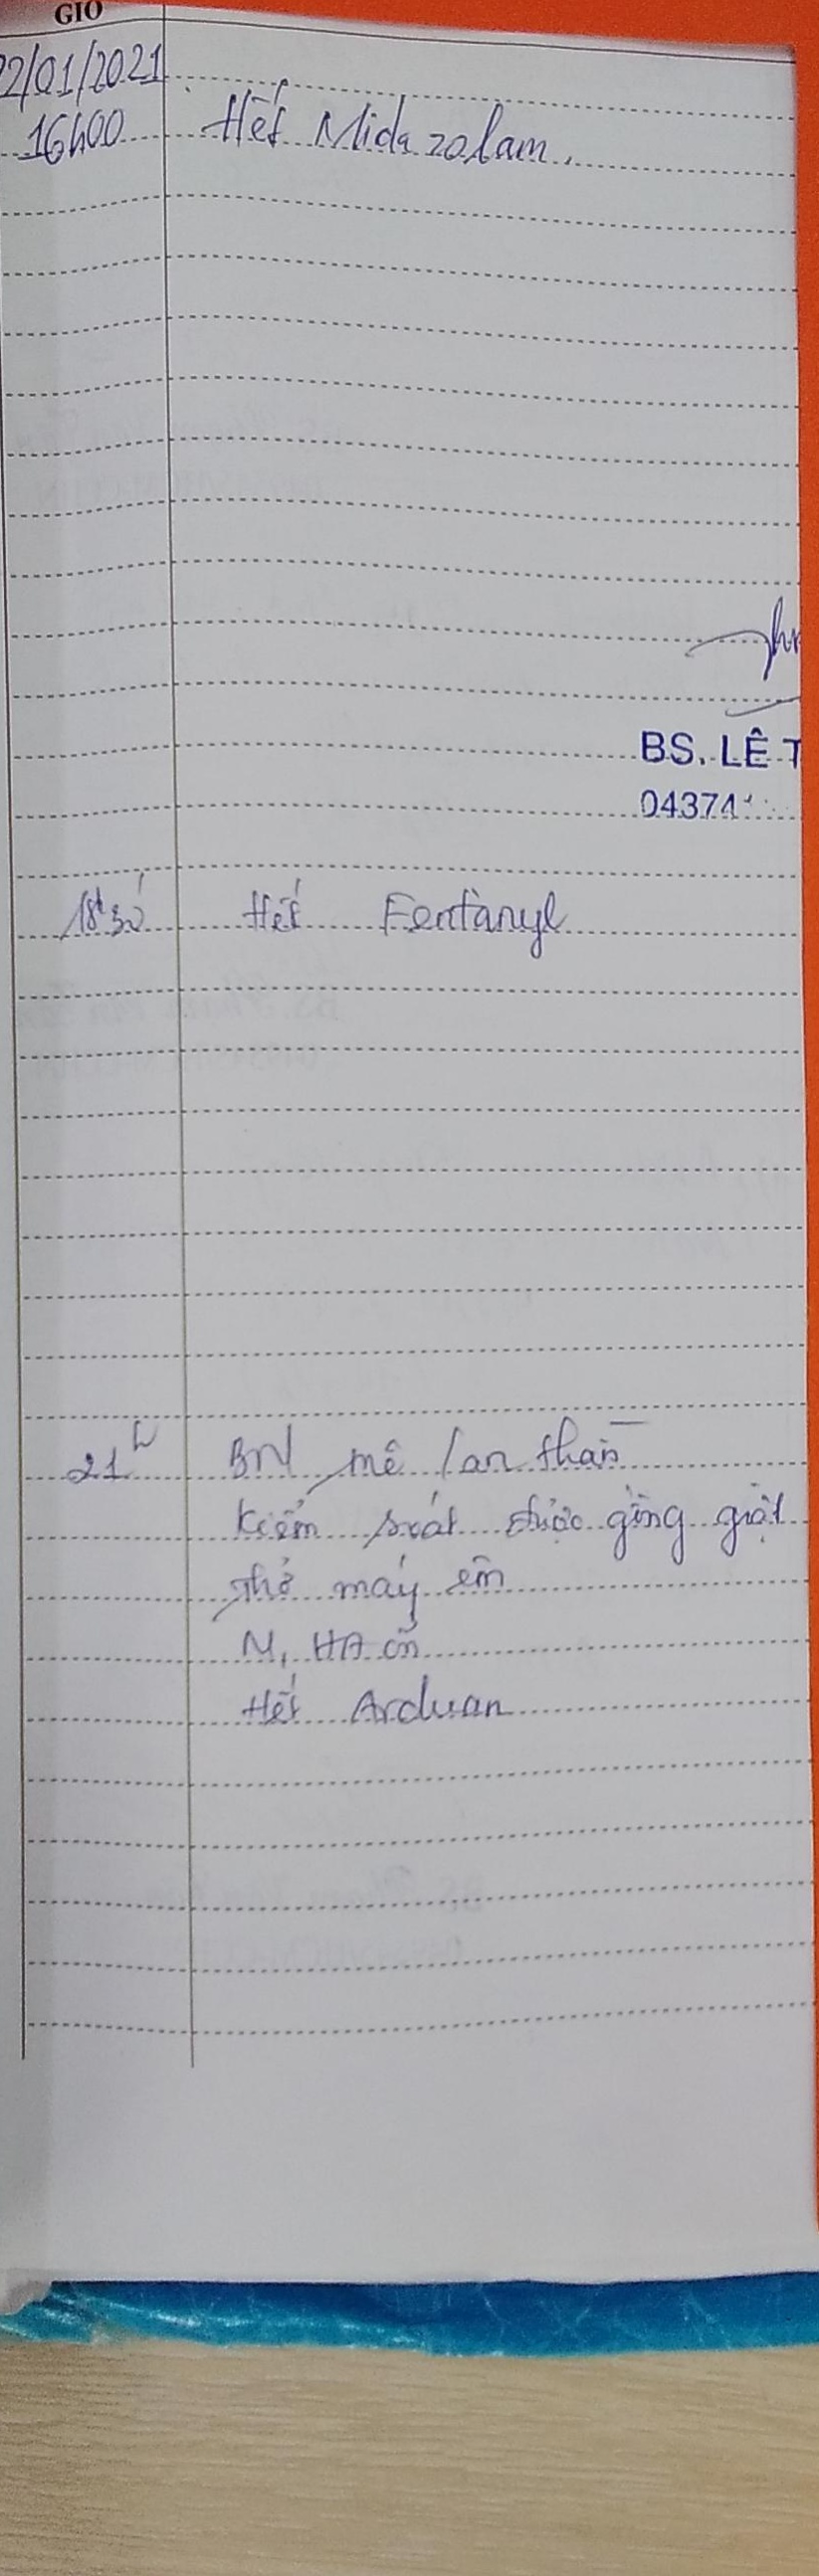 GIỜ
2/01/2021
16h00 Hết Midazolam.
BS. LÊ T
04374
18h30' Hết Fentanyl
21h BN mê / an thần
Kiểm soát được gồng giật
Thở máy êm
M, HA ổn
Hết Arduan